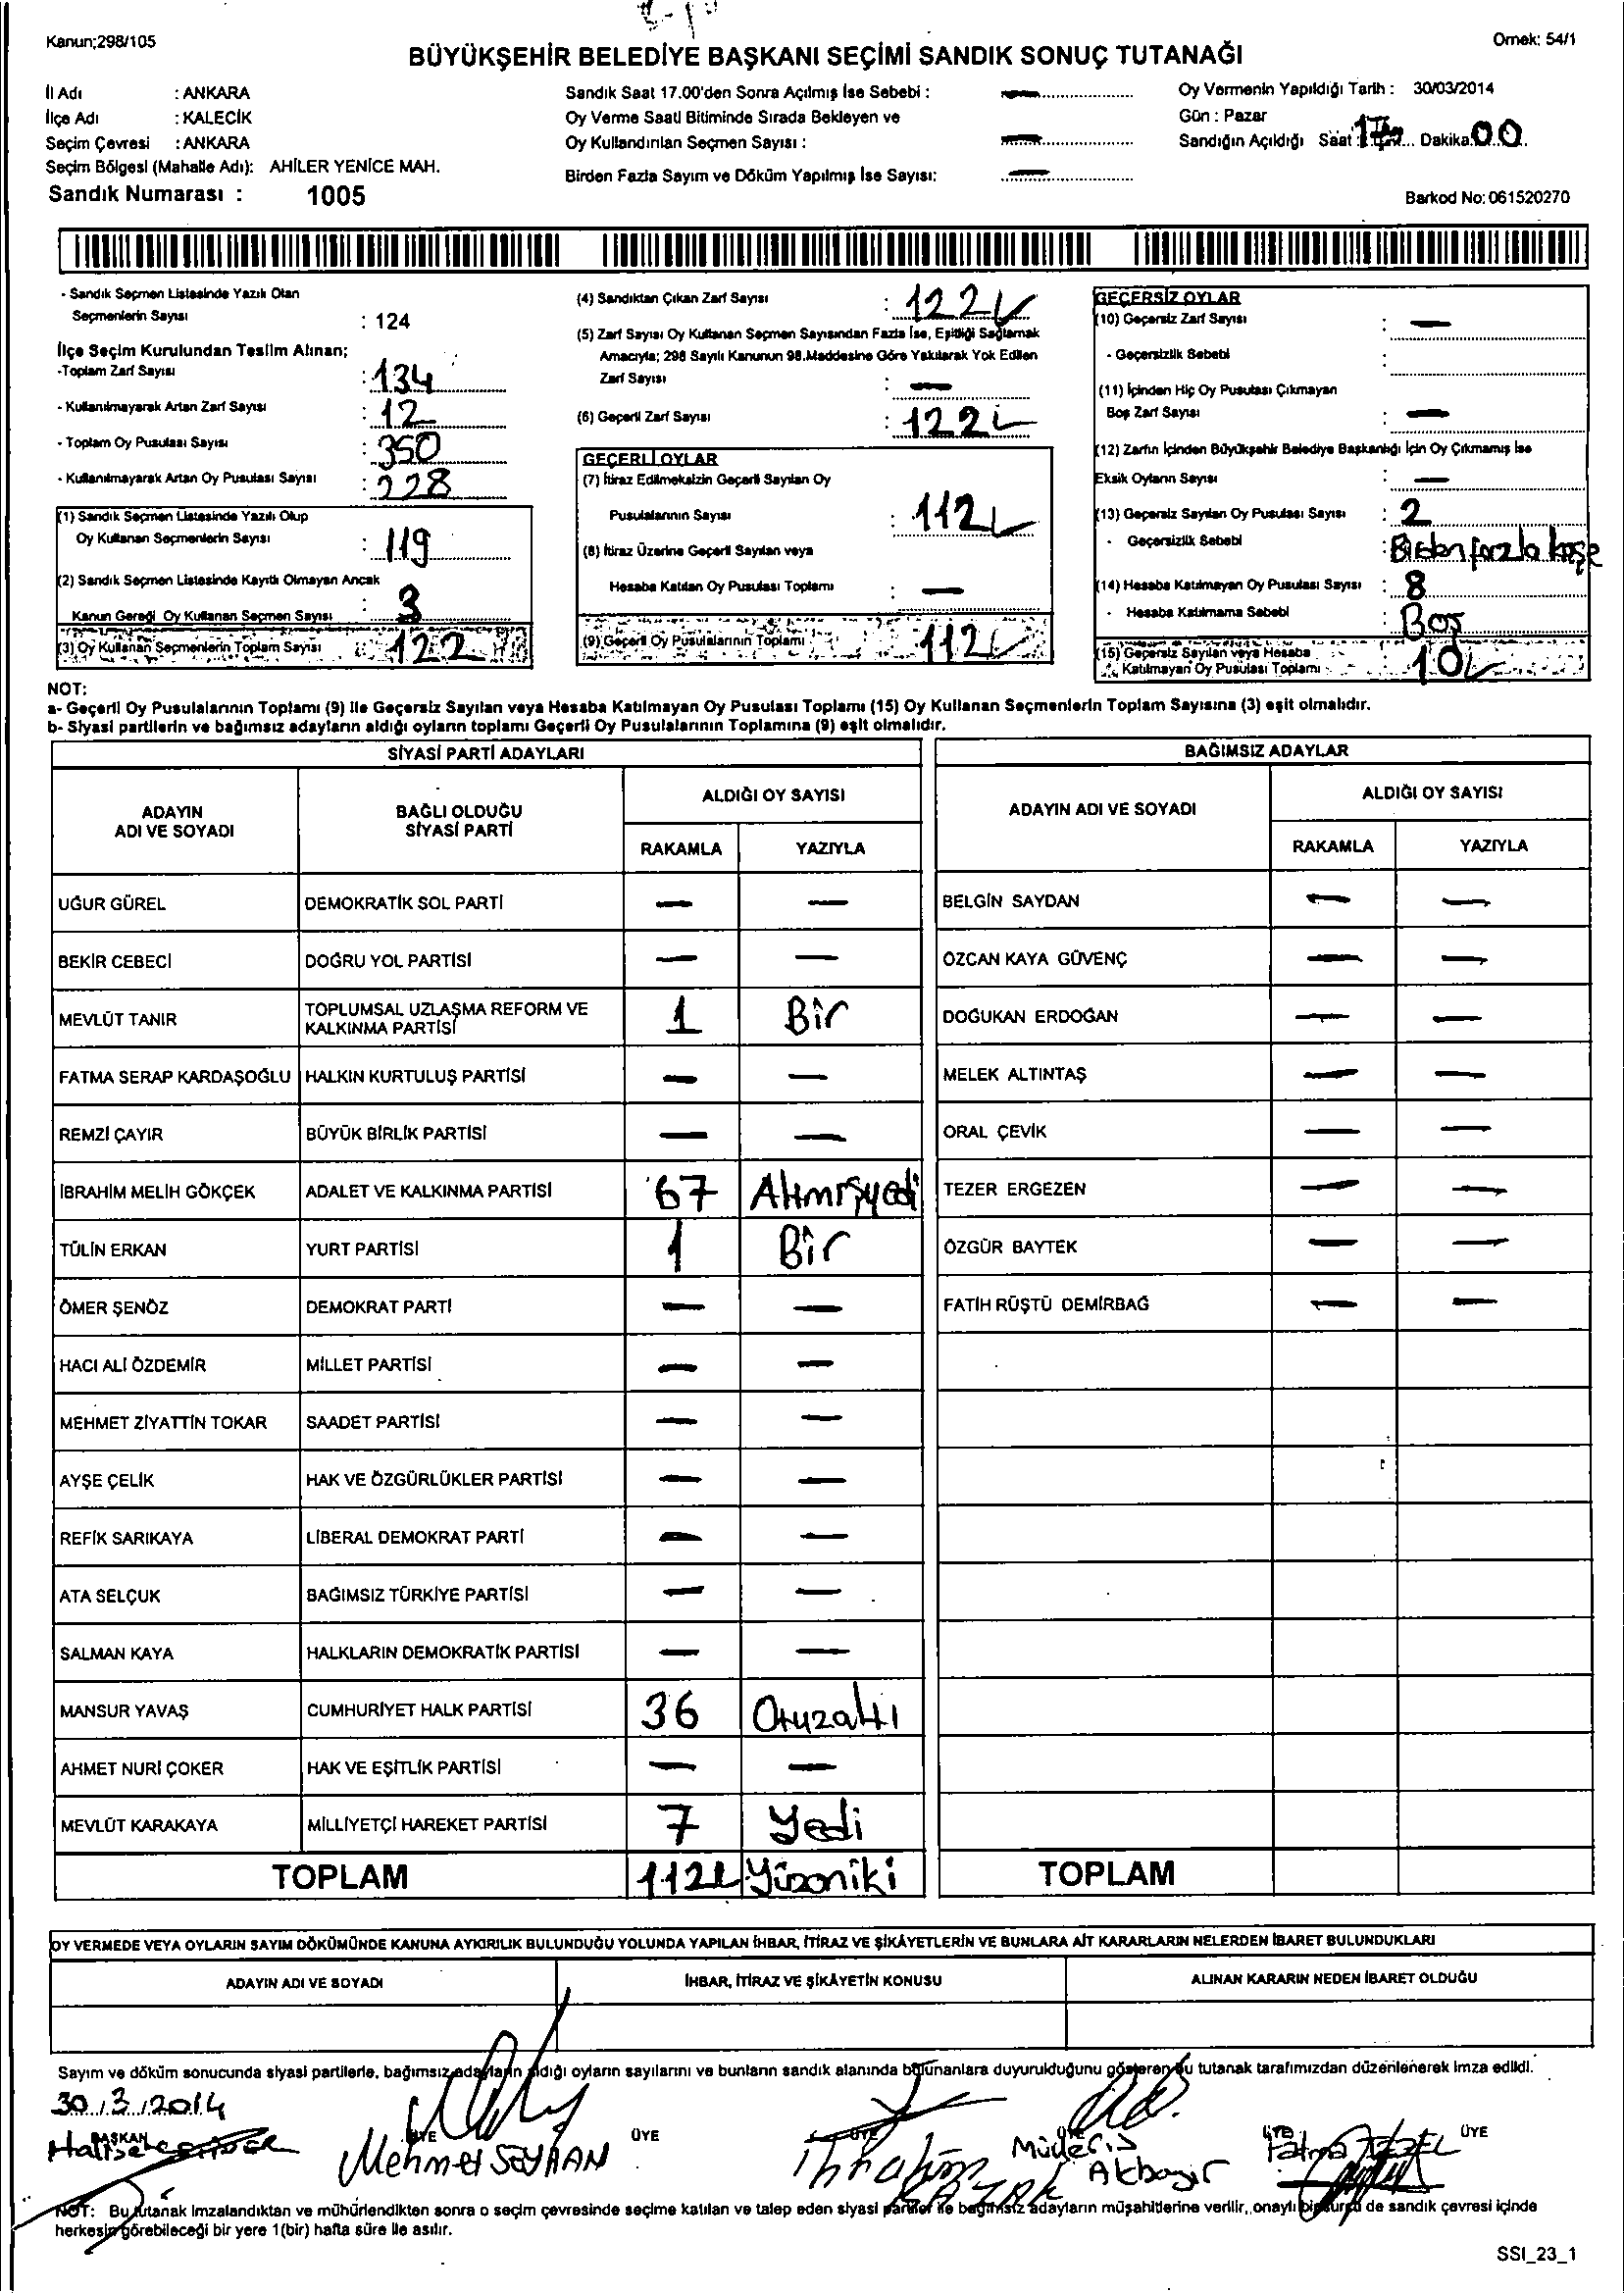 Kanun;298/105
Örnek: 54/1
BÜYÜKŞEHİR BELEDİYE BAŞKANI SEÇİMİ SANDIK SONUÇ TUTANAĞI
İl Adı : ANKARA
İlçe Adı : KALECİK
Seçim Çevresi : ANKARA
Seçim Bölgesi (Mahalle Adı): AHİLER YENİCE MAH.
Sandık Numarası : 1005
Sandık Saat 17.00'den Sonra Açılmış İse Sebebi : —
Oy Verme Saati Bitiminde Sırada Bekleyen ve
Oy Kullandırılan Seçmen Sayısı : —
Birden Fazla Sayım ve Döküm Yapılmış İse Sayısı: —
Oy Vermenin Yapıldığı Tarih : 30/03/2014
Gün : Pazar
Sandığın Açıldığı Saat 17 Dakika 00
Barkod No: 061520270
- Sandık Seçmen Listesinde Yazılı Olan
Seçmenlerin Sayısı : 124
İlçe Seçim Kurulundan Teslim Alınan;
-Toplam Zarf Sayısı : 134
- Kullanılmayarak Artan Zarf Sayısı : 12
- Toplam Oy Pusulası Sayısı : 350
- Kullanılmayarak Artan Oy Pusulası Sayısı : 228
(1) Sandık Seçmen Listesinde Yazılı Olup
Oy Kullanan Seçmenlerin Sayısı : 119
(2) Sandık Seçmen Listesinde Kayıtlı Olmayan Ancak
Kanun Gereği Oy Kullanan Seçmen Sayısı : 3
(3) Oy Kullanan Seçmenlerin Toplam Sayısı : 122
(4) Sandıktan Çıkan Zarf Sayısı : 122
(5) Zarf Sayısı Oy Kullanan Seçmen Sayısından Fazla İse, Eşitliği Sağlamak
Amacıyla; 298 Sayılı Kanunun 98.Maddesine Göre Yakılarak Yok Edilen
Zarf Sayısı : —
(6) Geçerli Zarf Sayısı : 122
GEÇERLİ OYLAR
(7) İtiraz Edilmeksizin Geçerli Sayılan Oy
Pusulalarının Sayısı : 112
(8) İtiraz Üzerine Geçerli Sayılan veya
Hesaba Katılan Oy Pusulası Toplamı : —
(9) Geçerli Oy Pusulalarının Toplamı : 112
GEÇERSİZ OYLAR
(10) Geçersiz Zarf Sayısı : —
- Geçersizlik Sebebi :
(11) İçinden Hiç Oy Pusulası Çıkmayan
Boş Zarf Sayısı : —
(12) Zarfın İçinden Büyükşehir Belediye Başkanlığı İçin Oy Çıkmamış İse
Eksik Oyların Sayısı : —
(13) Geçersiz Sayılan Oy Pusulası Sayısı : 2
- Geçersizlik Sebebi : Birden fazla kaşe
(14) Hesaba Katılmayan Oy Pusulası Sayısı : 8
- Hesaba Katılmama Sebebi : Boş
(15) Geçersiz Sayılan veya Hesaba
Katılmayan Oy Pusulası Toplamı : 10
NOT:
a- Geçerli Oy Pusulalarının Toplamı (9) ile Geçersiz Sayılan veya Hesaba Katılmayan Oy Pusulası Toplamı (15) Oy Kullanan Seçmenlerin Toplam Sayısına (3) eşit olmalıdır.
b- Siyasi partilerin ve bağımsız adayların aldığı oyların toplamı Geçerli Oy Pusulalarının Toplamına (9) eşit olmalıdır.
SİYASİ PARTİ ADAYLARI
ADAYIN ADI VE SOYADI BAĞLI OLDUĞU SİYASİ PARTİ ALDIĞI OY SAYISI
RAKAMLA YAZIYLA
UĞUR GÜREL DEMOKRATİK SOL PARTİ — —
BEKİR CEBECİ DOĞRU YOL PARTİSİ — —
MEVLÜT TANIR TOPLUMSAL UZLAŞMA REFORM VE KALKINMA PARTİSİ 1 Bir
FATMA SERAP KARDAŞOĞLU HALKIN KURTULUŞ PARTİSİ — —
REMZİ ÇAYIR BÜYÜK BİRLİK PARTİSİ — —
İBRAHİM MELİH GÖKÇEK ADALET VE KALKINMA PARTİSİ 67 Altmışyedi
TÜLİN ERKAN YURT PARTİSİ 1 Bir
ÖMER ŞENÖZ DEMOKRAT PARTİ — —
HACI ALİ ÖZDEMİR MİLLET PARTİSİ — —
MEHMET ZİYATTİN TOKAR SAADET PARTİSİ — —
AYŞE ÇELİK HAK VE ÖZGÜRLÜKLER PARTİSİ — —
REFİK SARIKAYA LİBERAL DEMOKRAT PARTİ — —
ATA SELÇUK BAĞIMSIZ TÜRKİYE PARTİSİ — —
SALMAN KAYA HALKLARIN DEMOKRATİK PARTİSİ — —
MANSUR YAVAŞ CUMHURİYET HALK PARTİSİ 36 Otuzaltı
AHMET NURİ ÇOKER HAK VE EŞİTLİK PARTİSİ — —
MEVLÜT KARAKAYA MİLLİYETÇİ HAREKET PARTİSİ 7 Yedi
TOPLAM 112 Yüzoniki
BAĞIMSIZ ADAYLAR
ADAYIN ADI VE SOYADI ALDIĞI OY SAYISI
RAKAMLA YAZIYLA
BELGİN SAYDAN — —
ÖZCAN KAYA GÜVENÇ — —
DOĞUKAN ERDOĞAN — —
MELEK ALTINTAŞ — —
ORAL ÇEVİK — —
TEZER ERGEZEN — —
ÖZGÜR BAYTEK — —
FATİH RÜŞTÜ DEMİRBAĞ — —
TOPLAM
OY VERMEDE VEYA OYLARIN SAYIM DÖKÜMÜNDE KANUNA AYKIRILIK BULUNDUĞU YOLUNDA YAPILAN İHBAR, İTİRAZ VE ŞİKÂYETLERİN VE BUNLARA AİT KARARLARIN NELERDEN İBARET BULUNDUKLARI
ADAYIN ADI VE SOYADI İHBAR, İTİRAZ VE ŞİKÂYETİN KONUSU ALINAN KARARIN NEDEN İBARET OLDUĞU
Sayım ve döküm sonucunda siyasi partilerle, bağımsız adayların aldığı oyların sayılarını ve bunların sandık alanında bulunanlara duyurulduğunu gösteren bu tutanak tarafımızdan düzenlenerek imza edildi.
30.3.2014
BAŞKAN ÜYE ÜYE ÜYE ÜYE ÜYE
Mehmet SEYHAN İbrahim KAZAK Akbayır Fatma
NOT: Bu tutanak imzalandıktan ve mühürlendikten sonra o seçim çevresinde seçime katılan ve talep eden siyasi partiler ile bağımsız adayların müşahitlerine verilir, onaylı bir sureti de sandık çevresi içinde
herkesin görebileceği bir yere 1(bir) hafta süre ile asılır.
SSI_23_1